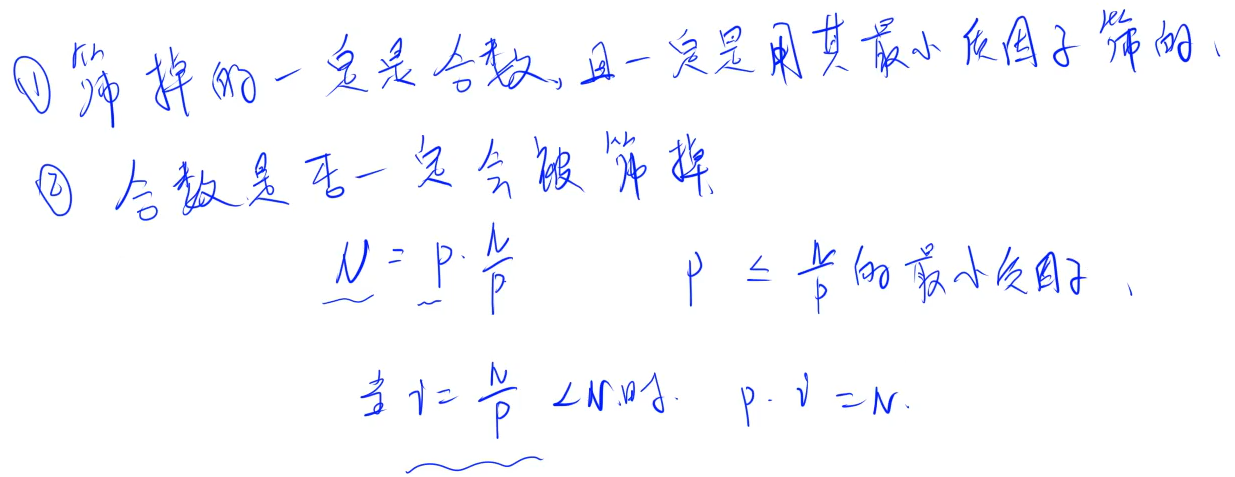 ① 筛掉的一定是合数,且一定是用其最小质因子筛的.
② 合数是否一定会被筛掉
N = p · N/p    p ≤ N/p 的最小质因子.
当 i = N/p < N时. p · i = N.